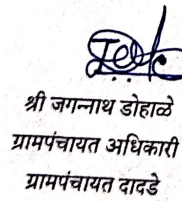 श्री जगन्नाथ डोहाळे
ग्रामपंचायत अधिकारी
ग्रामपंचायत दादडे